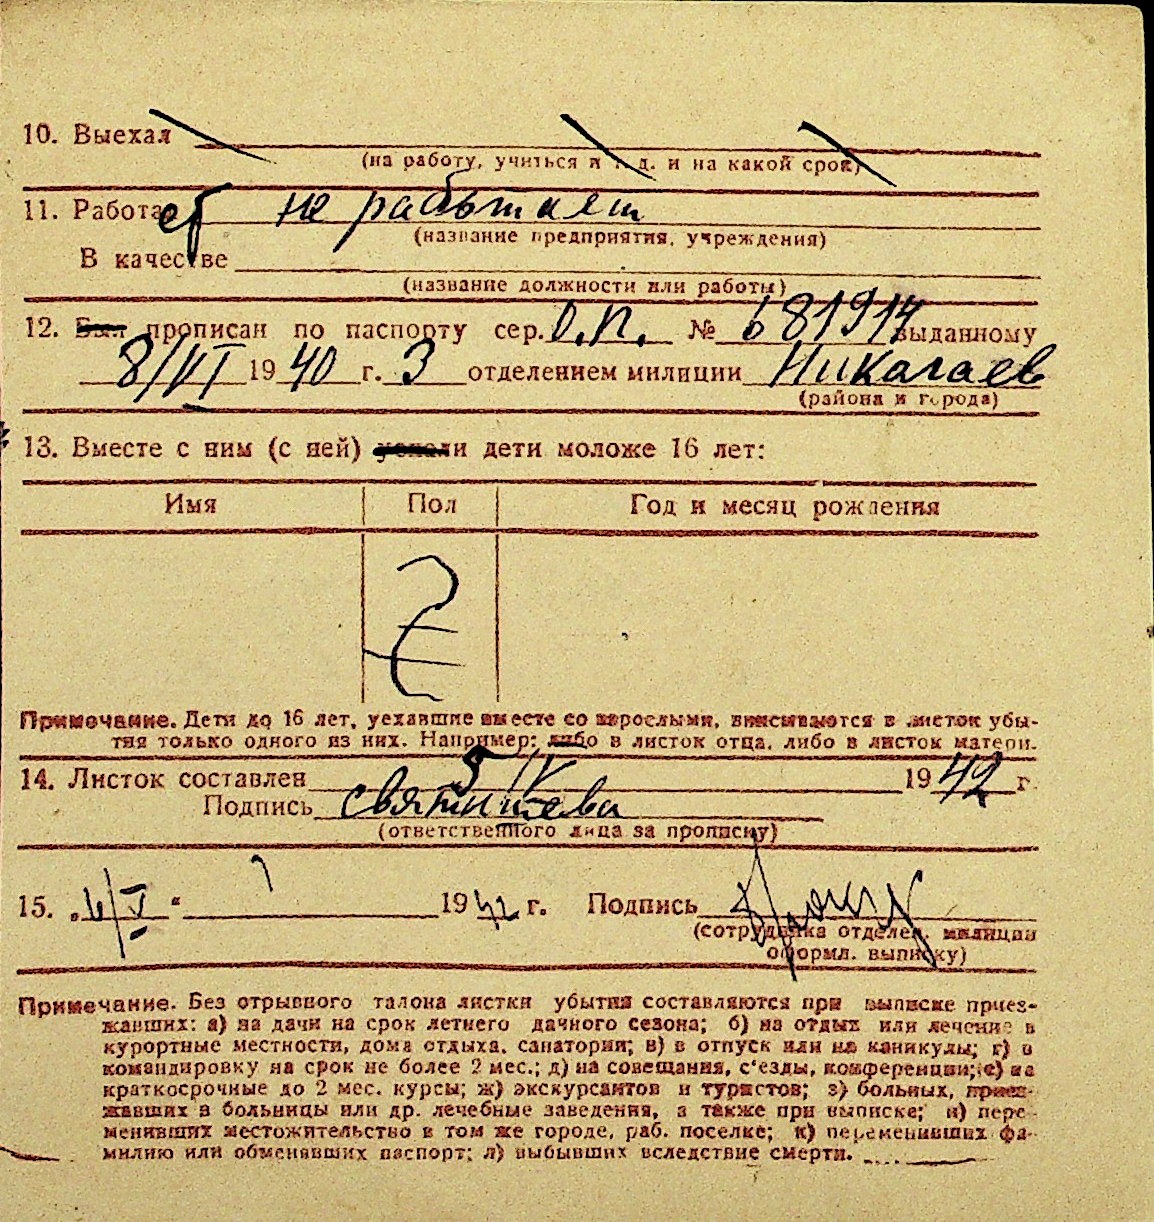 10. Выехал
(на работу, учиться и т. д. и на какой срок)
11. Работает не работает
(название предприятия, учреждения)
В качестве
(название должности или работы)
12. Был прописан по паспорту сер. О.П. № 681914 выданному
8/VI 1940 г. 3 отделением милиции Николаев
(района и города)
13. Вместе с ним (с ней) уехали дети моложе 16 лет:
Имя Пол Год и месяц рождения
Примечание. Дети до 16 лет, уехавшие вместе со взрослыми, вписываются в листок убы-
тия только одного из них. Например: либо в листок отца, либо в листок матери.
14. Листок составлен 5/V 1942 г.
Подпись
(ответственного лица за прописку)
15. „6/V“ 1942 г. Подпись
(сотрудника отделен. милиции
оформл. выписку)
Примечание. Без отрывного талона листки убытия составляются при выписке приез-
жавших: а) на дачи на срок летнего дачного сезона; б) на отдых или лечение в
курортные местности, дома отдыха, санатории; в) в отпуск или на каникулы; г) в
командировку на срок не более 2 мес.; д) на совещания, с'езды, конференции; е) на
краткосрочные до 2 мес. курсы; ж) экскурсантов и туристов; з) больных, приез-
жавших в больницы или др. лечебные заведения, а также при выписке; и) пере-
менивших местожительство в том же городе, раб. поселке; к) переменивших фа-
милию или обменявших паспорт; л) выбывших вследствие смерти.